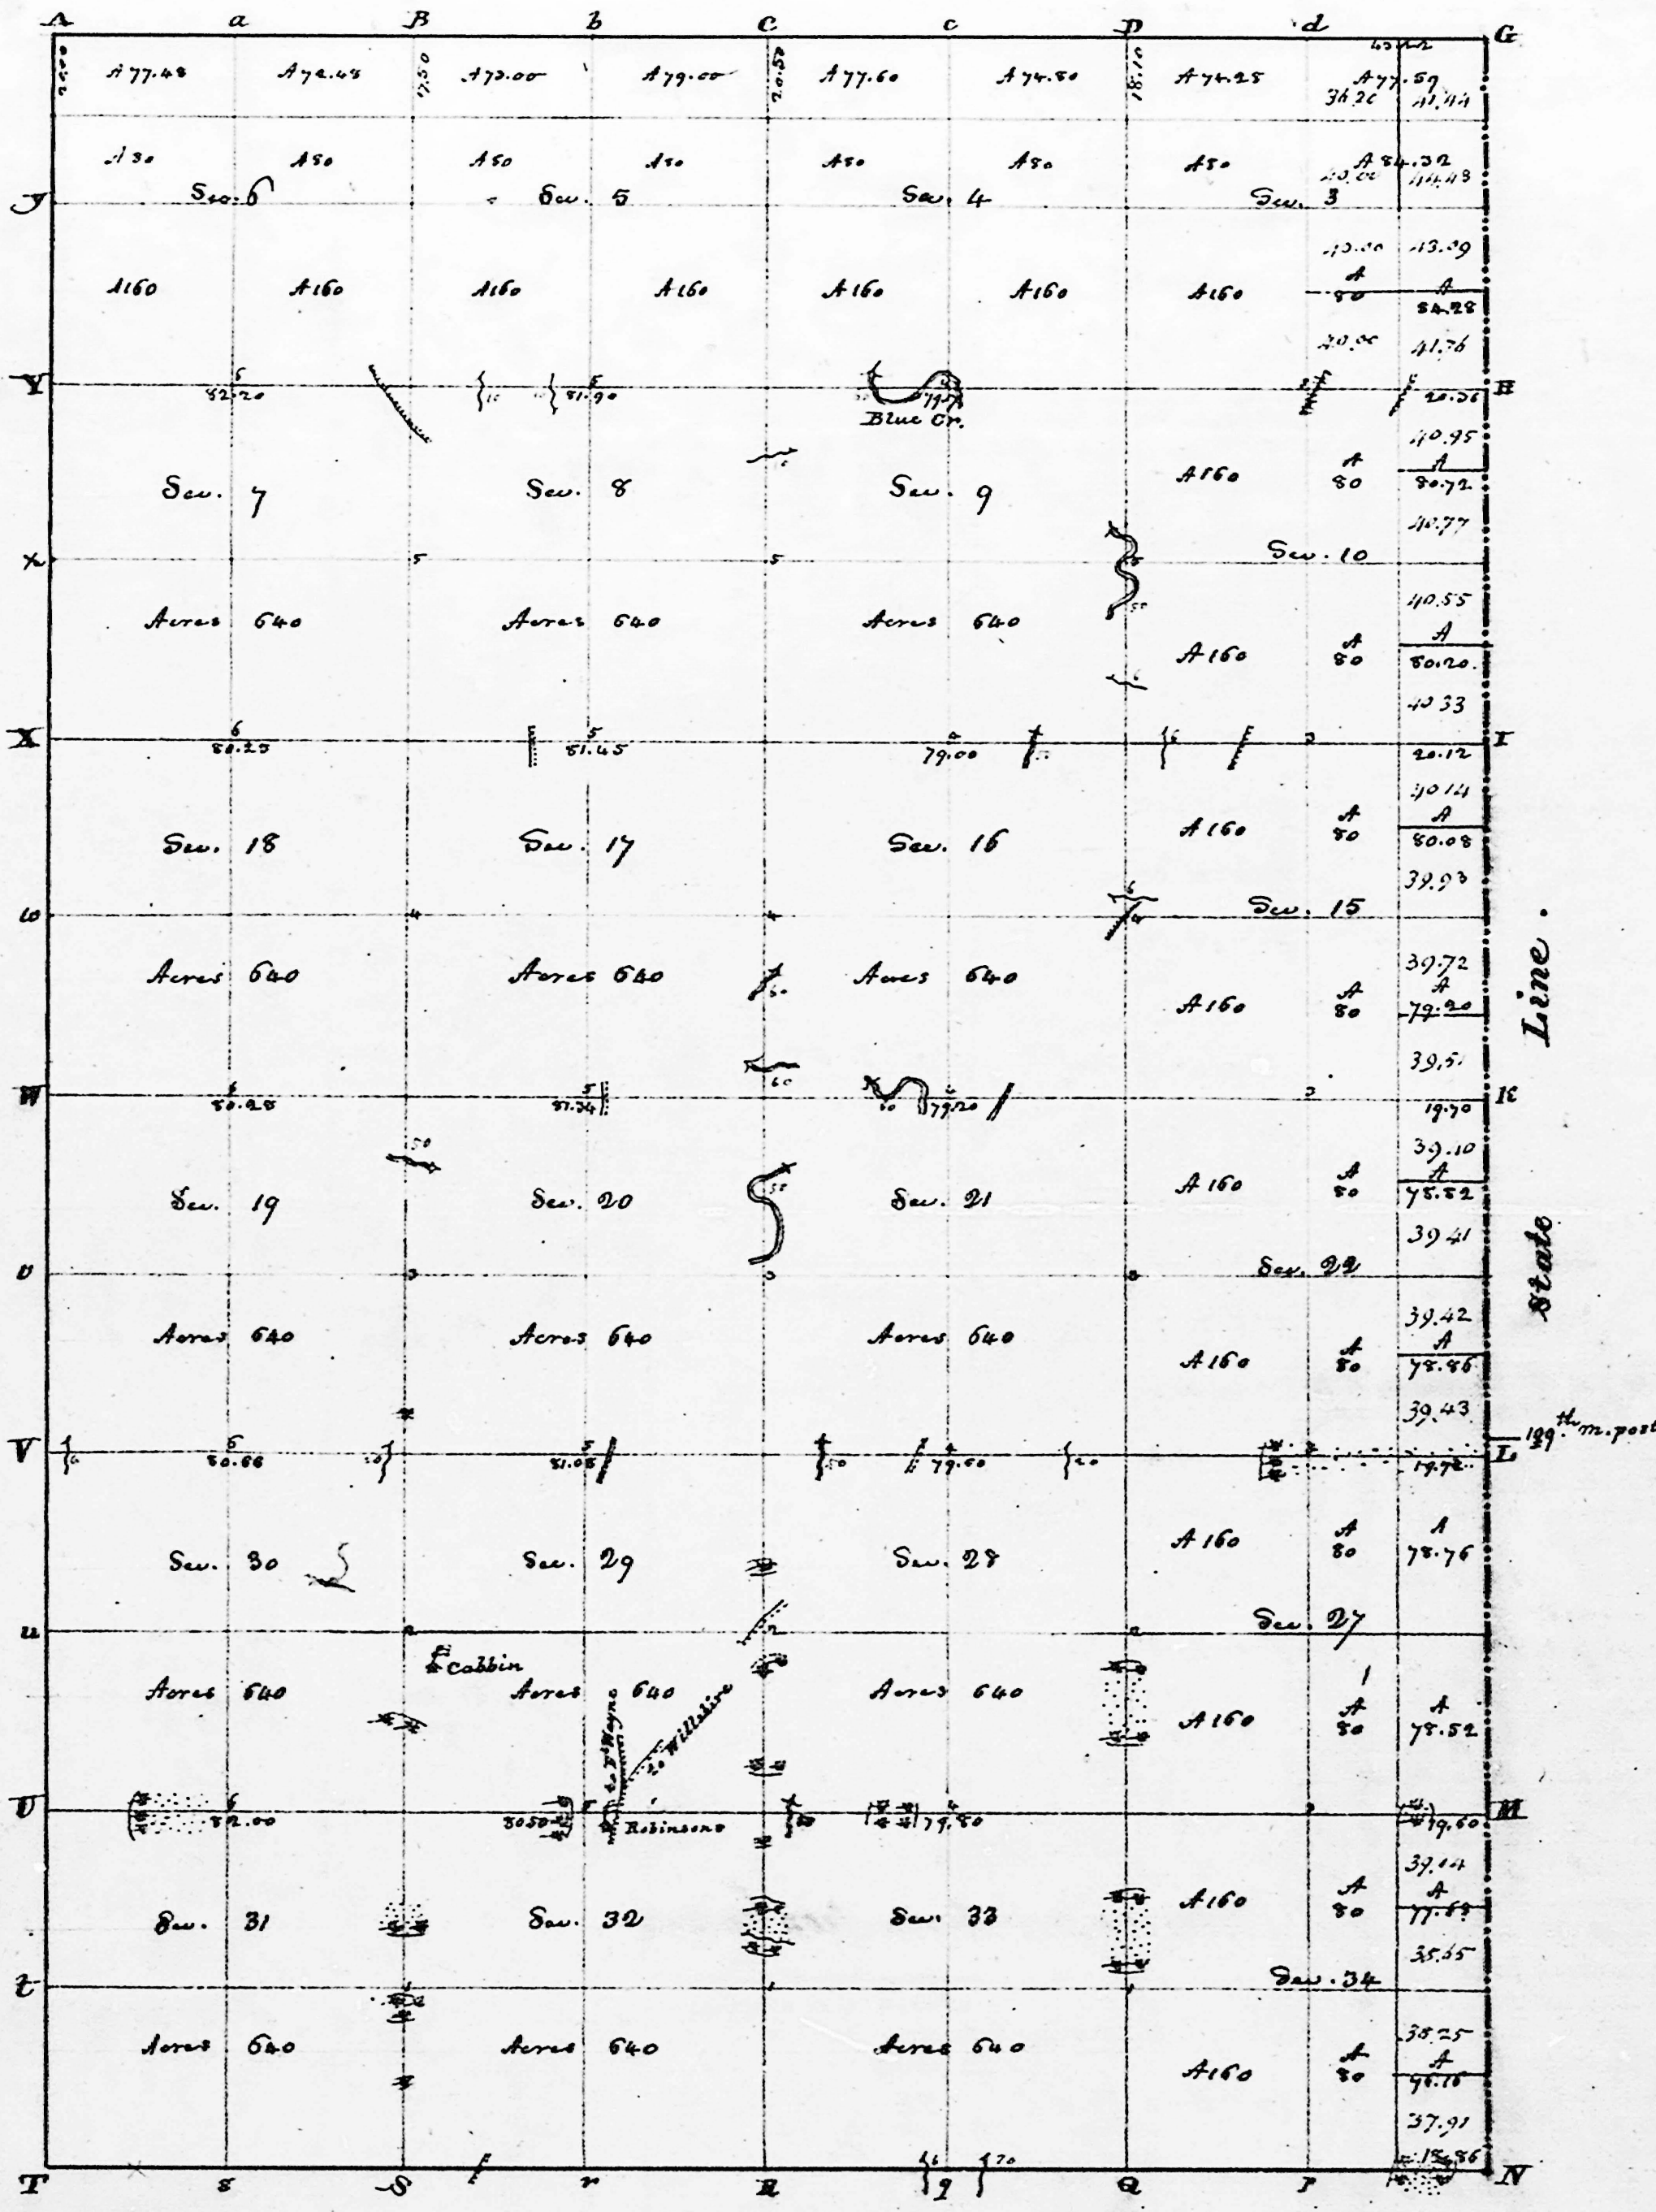 A a B b C c D d G
A 77.48 A 72.48 A 73.00 A 79.00 A 77.60 A 74.80 18.10 A 74.25 A 77.59
41.44
A 80 A 80 A 80 A 80 A 80 A 80 A 80 A 84.32
Sec. 6 Sec. 5 Sec. 4 Sec. 3
40.00 43.09
A 160 A 160 A 160 A 160 A 160 A 160 A 160 A 80 A 84.28
40.00 41.76
Y 6 82.20 5 81.90 H
Blue Cr.
40.95
Sec. 7 Sec. 8 Sec. 9 A 160 A 80 A 80.72
40.77
x 5 5 Sec. 10
40.55
Acres 640 Acres 640 Acres 640
A 160 A 80 A 80.20
40 33
X 6 80.25 5 81.45 4 79.00 3 20.12 I
40 14
Sec. 18 Sec. 17 Sec. 16 A 160 A 80 A 80.08
39.93
w 4 4 4 Sec. 15
39.72
Acres 640 Acres 640 Acres 640 A 160 A 80 A 79.20
39.51
W 6 5 4 79.20 3 19.70 K
39.10
Sec. 19 Sec. 20 Sec. 21 A 160 A 80 A 78.82
39 41
v 3 3 3 Sec. 22
39.42
Acres 640 Acres 640 Acres 640 A 160 A 80 A 78.86
39.43
V 6 80.66 5 81.08 4 79.60 L 129th m. post
Sec. 30 Sec. 29 Sec. 28 A 160 A 80 A 78.76
u 2 2 2 Sec. 27
Cabbin
Acres 640 Acres 640 Acres 640 A 160 A 80 A 78.52
to Ft Wayne
to Willshire
U 6 82.00 80.50 5 Robinsons 4 79.80 19.60 M
39.14
Sec. 31 Sec. 32 Sec. 33 A 160 A 80 A
t Sec. 34
38.25
Acres 640 Acres 640 Acres 640 A 160 A 80 A
37.91
18.86
T s S r R q Q P N
State Line.